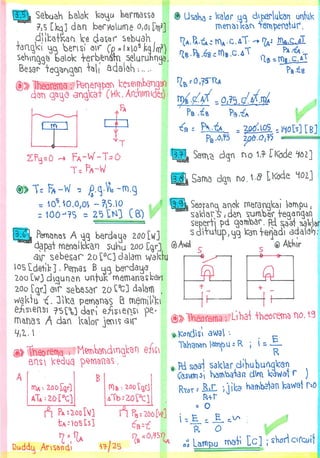 3.5 Sebuah balok kayu bermassa
7,5 [kg] dan bervolume 0,01 [m³]
diikatkan ke dasar sebuah
tangki yg berisi air (ρ = 1x10³ kg/m³)
sehingga balok terbenam seluruhnya.
Besar tegangan tali adalah ....
Theorema : Penerapan keseimbangan
dan gaya angkat (Hk. Archimides)
FA
m
W
T
ΣFy=0 → FA-W-T=0
T = FA-W
T = FA-W = ρ.g.Vb - m.g
= 10³.10.0,01 - 7,5.10
= 100-75 = 25 [N] (B)
3.6 Pemanas A yg berdaya 200 [W]
dapat menaikkan suhu 200 [gr]
air sebesar 20 [°C] dalam waktu
105 [detik]. Pemanas B yg berdaya
200 [W] digunakan untuk memanaskan
200 [gr] air sebesar 20 [°C] dalam
waktu t. Jika pemanas B memiliki
efisiensi 75 [%] dari efisiensi pe-
manas A dan kalor jenis air
4,2 .
Theorema : Membandingkan efisi
ensi kedua pemanas.
A
B
mA : 200 [gr]
ΔTA : 20 [°C]
mB : 200 [gr]
ΔTB : 20 [°C]
PA = 200 [W]
tA = 105 [s]
PB = 200 [W]
tB = t
Ruddy Arisandi
17/25
Usaha = kalor yg diperlukan untuk
menaikan temperatur.
ηA.PA.tA = mA.C.ΔT → ηA = mA.C.ΔT
PA.tA
ηB.PB.tB = mB.C.ΔT
ηB = mB.C.ΔT
PB.tB
ηB = 0,75 ηA
mB.C.ΔT = 0,75.C.ΔT.mA
PB.tB PA.tA
tB = PA.tA = 200.105 = 140 [s] [B]
PB.0,75 200.0,75
3.7 Sama dgn no 1.7 [Kode 402]
3.8 Sama dgn no. 1.8 [Kode 402]
3.9 Seorang anak merangkai lampu,
saklar S, dan sumber tegangan
seperti pd gambar. Pd saat saklar
s ditutup, yg kan terjadi adalah :
Awal
Akhir
S
S
Theorema : Lihat theorema no. 19
Kondisi awal :
Tahanan lampu = R ; i = E
R
Pd saat saklar dihubungkan
(asumsi hambatan dlm kawat r)
Rtot = R.r ; jika hambatan kawat r≈0
R+r
= 0
i = E = E = ∞
R 0
∴ Lampu mati [C] ; short circuit